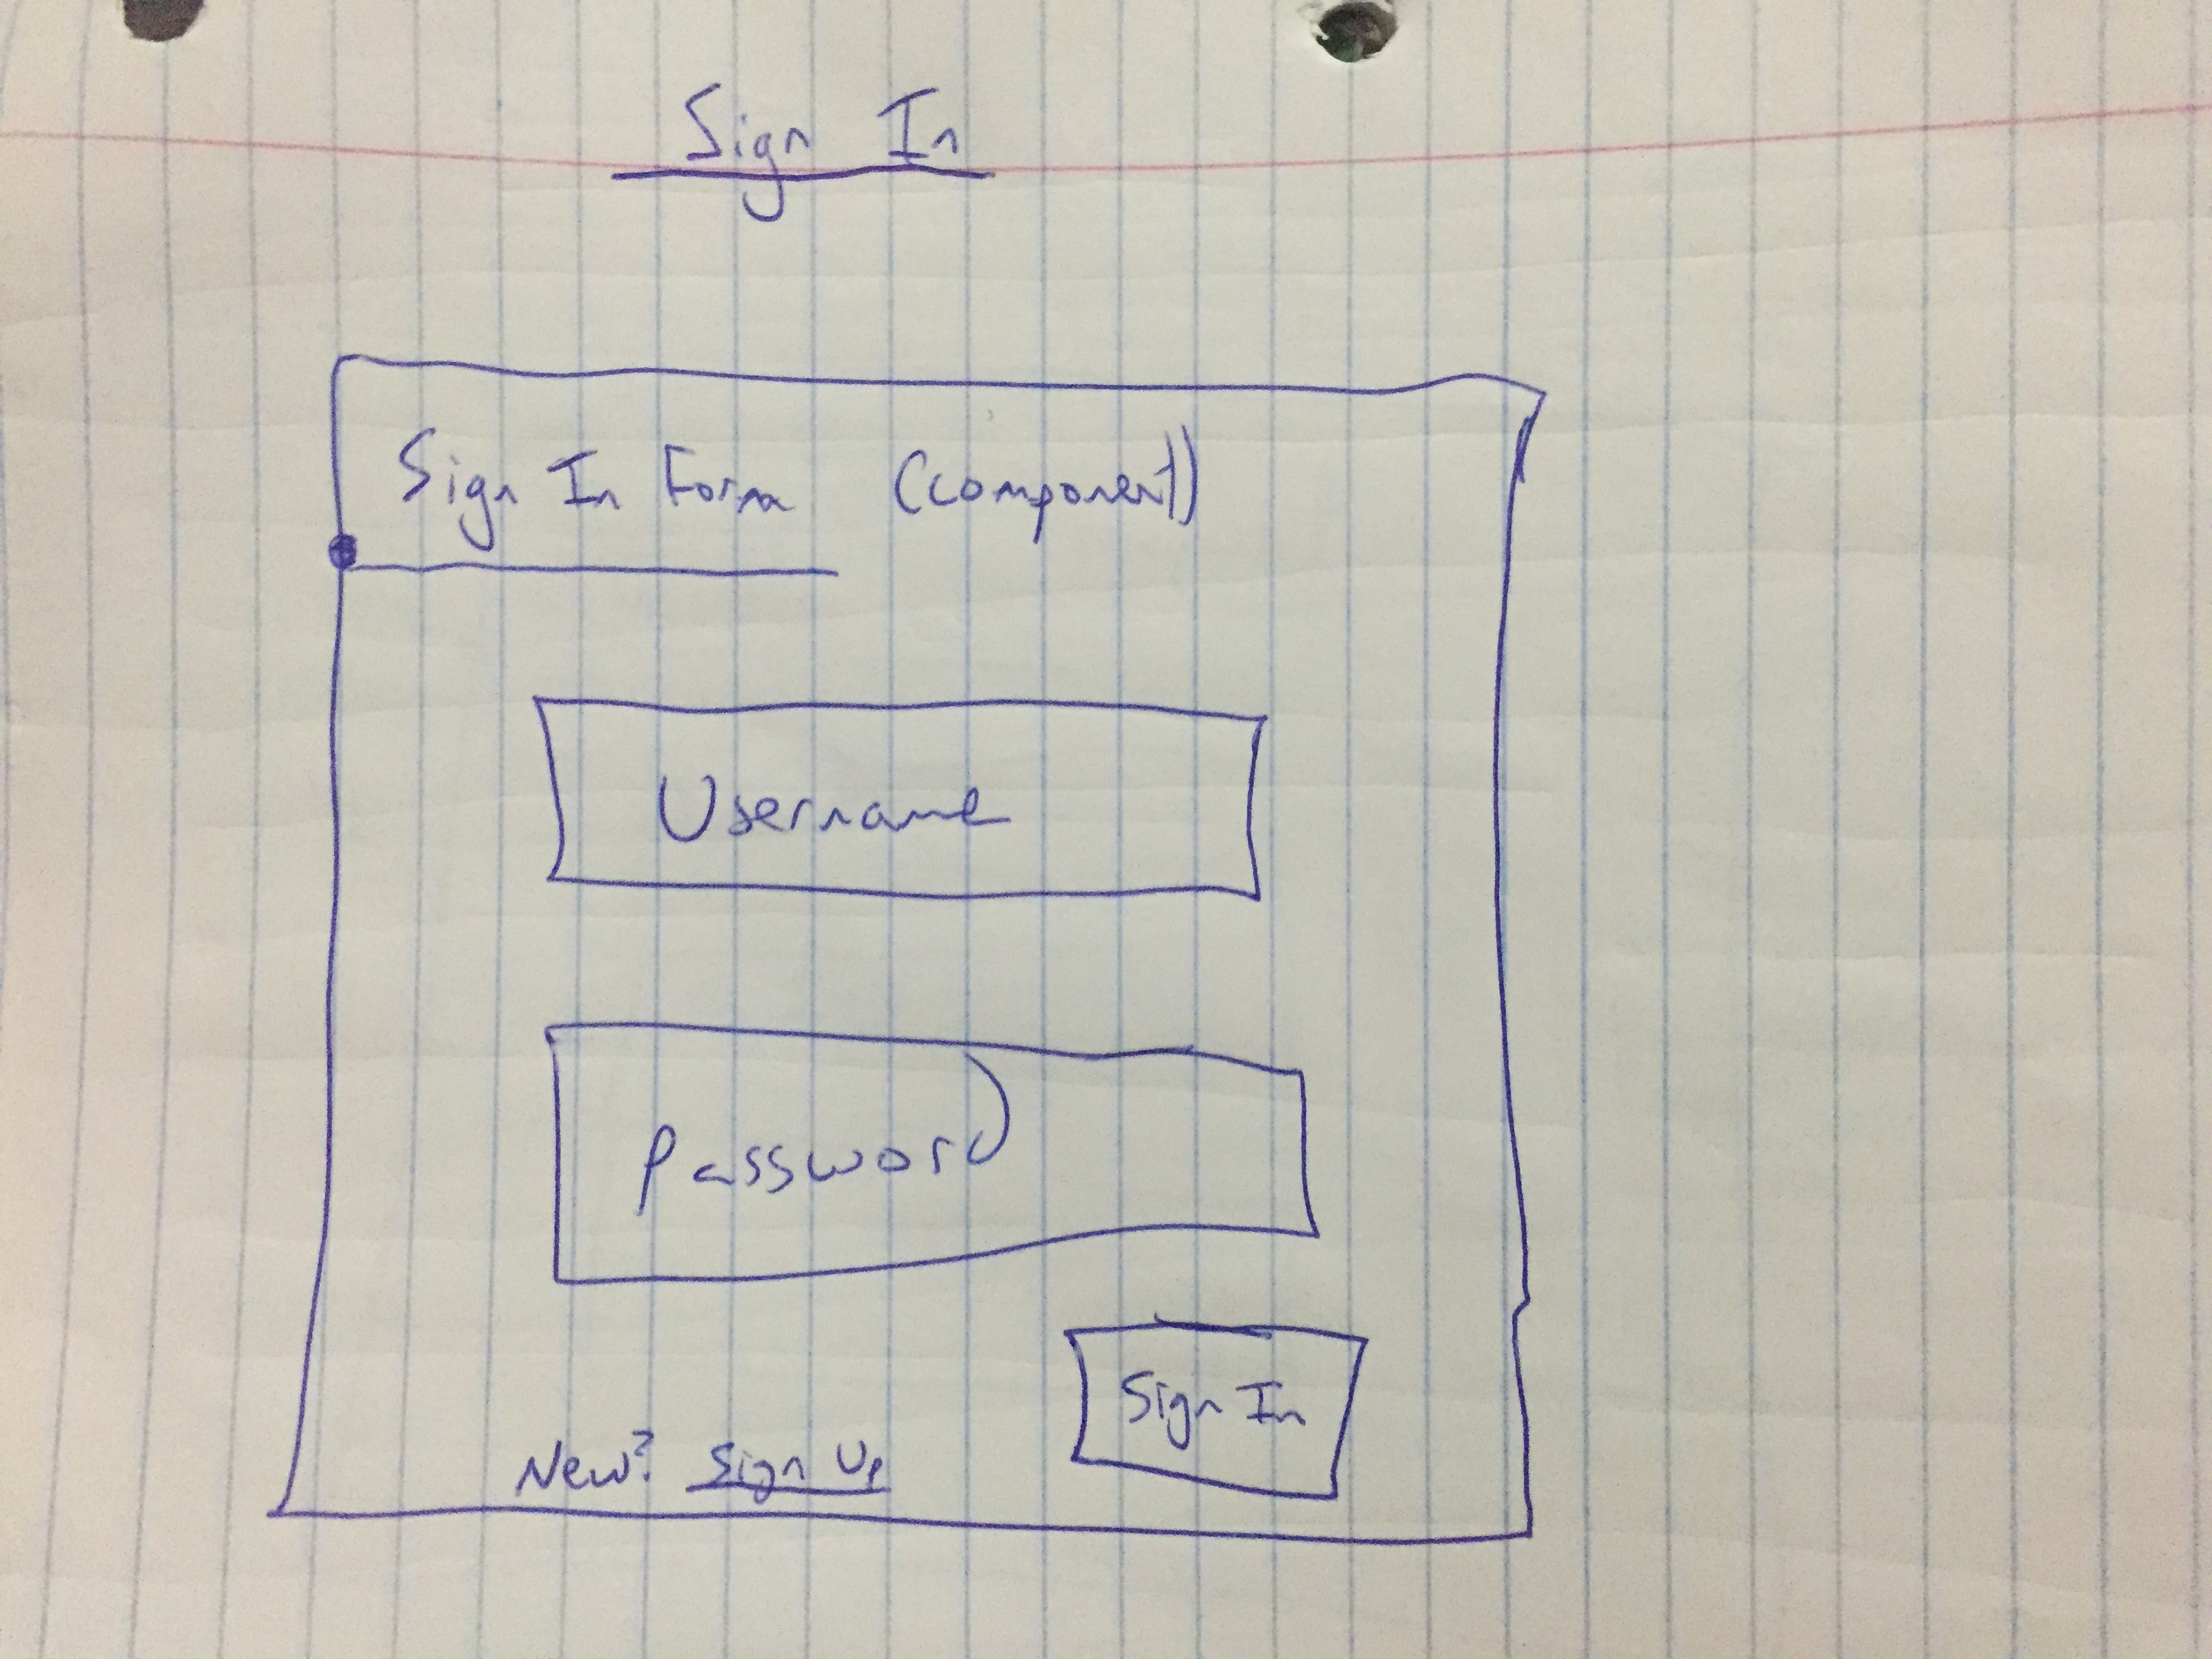 Sign In
Sign In Form (component)
Username
Password
Sign In
New? Sign Up